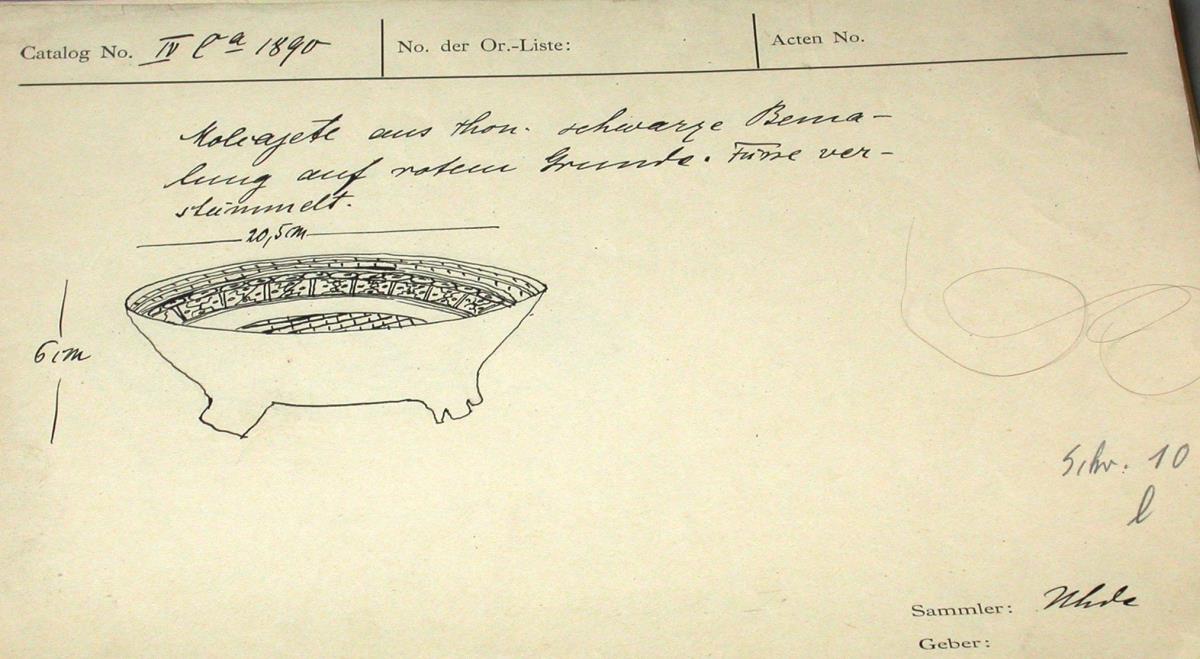 Catalog No. IV Ca 1890
No. der Or.-Liste:
Acten No.
Molcajete aus Thon. schwarze Bema-
lung auf rotem Grunde. Füsse ver-
stümmelt.
20,5 cm
6 cm
Schr. 10
l
Sammler: Uhde
Geber: